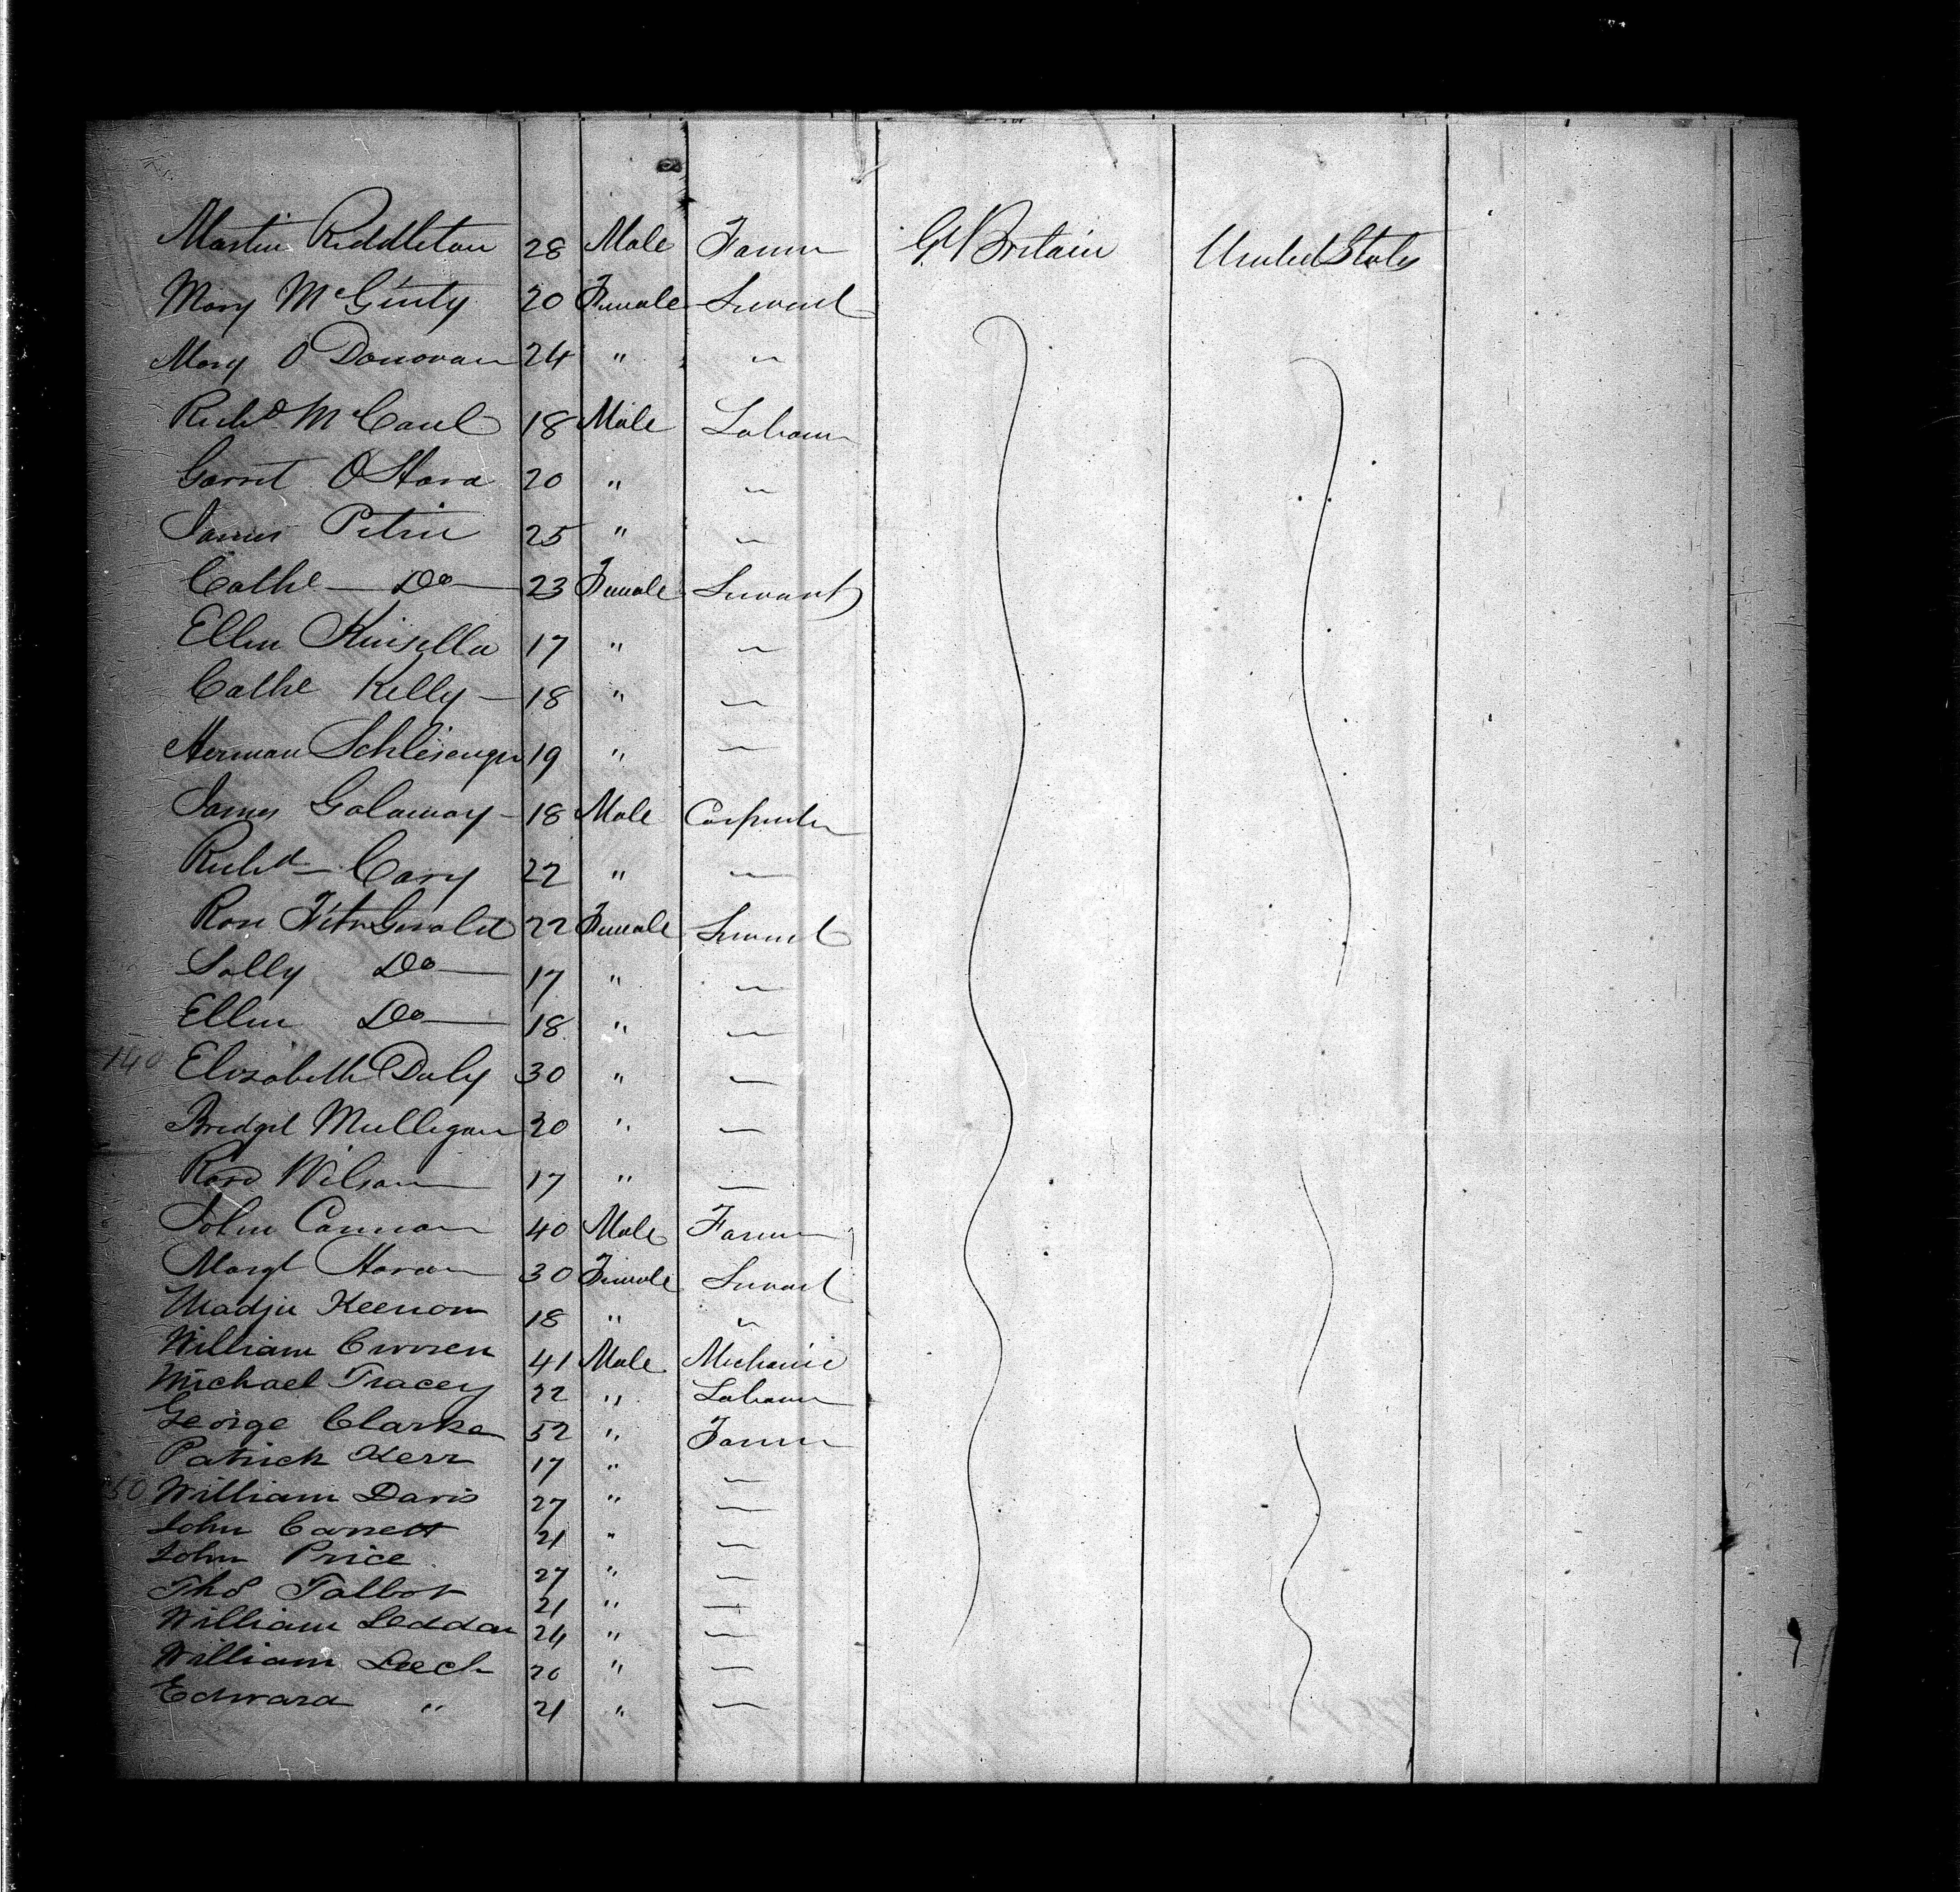 Martin Riddleton 28 Male Farmer Gt Britain United States
Mary McGinty 20 Female Servant
Mary O Donovan 24 " "
Richd McCaul 18 Male Labourer
Garret O Hara 20 " "
James Petrie 25 " "
Cathe — Do — 23 Female Servant
Ellen Kinsella 17 " "
Cathe Kelly — 18 " "
Herman Schlesenger 19 " "
James Galaway — 18 Male Carpenter
Richd — Cary 22 " "
Rose FitzGerald 22 Female Servant
Sally Do — 17 " "
Ellen Do — 18 " "
140 Elizabeth Daly 30 " "
Bridget Mulligan 20 " "
Rose Wilson 17 " "
John Cannon 40 Male Farmer
Margt Horan 30 Female Servant
Keenon 18 " "
William Curren 41 Male Mechanic
Michael Tracey 22 " Labourer
George Clarke 52 " Farmer
Patrick Kerr 17 " "
50 William Davis 27 " "
John Garrett 21 " "
John Price 27 " "
Thos Talbot 21 " "
William Leddan 24 " "
William Leech 20 " "
Edward " 21 " "